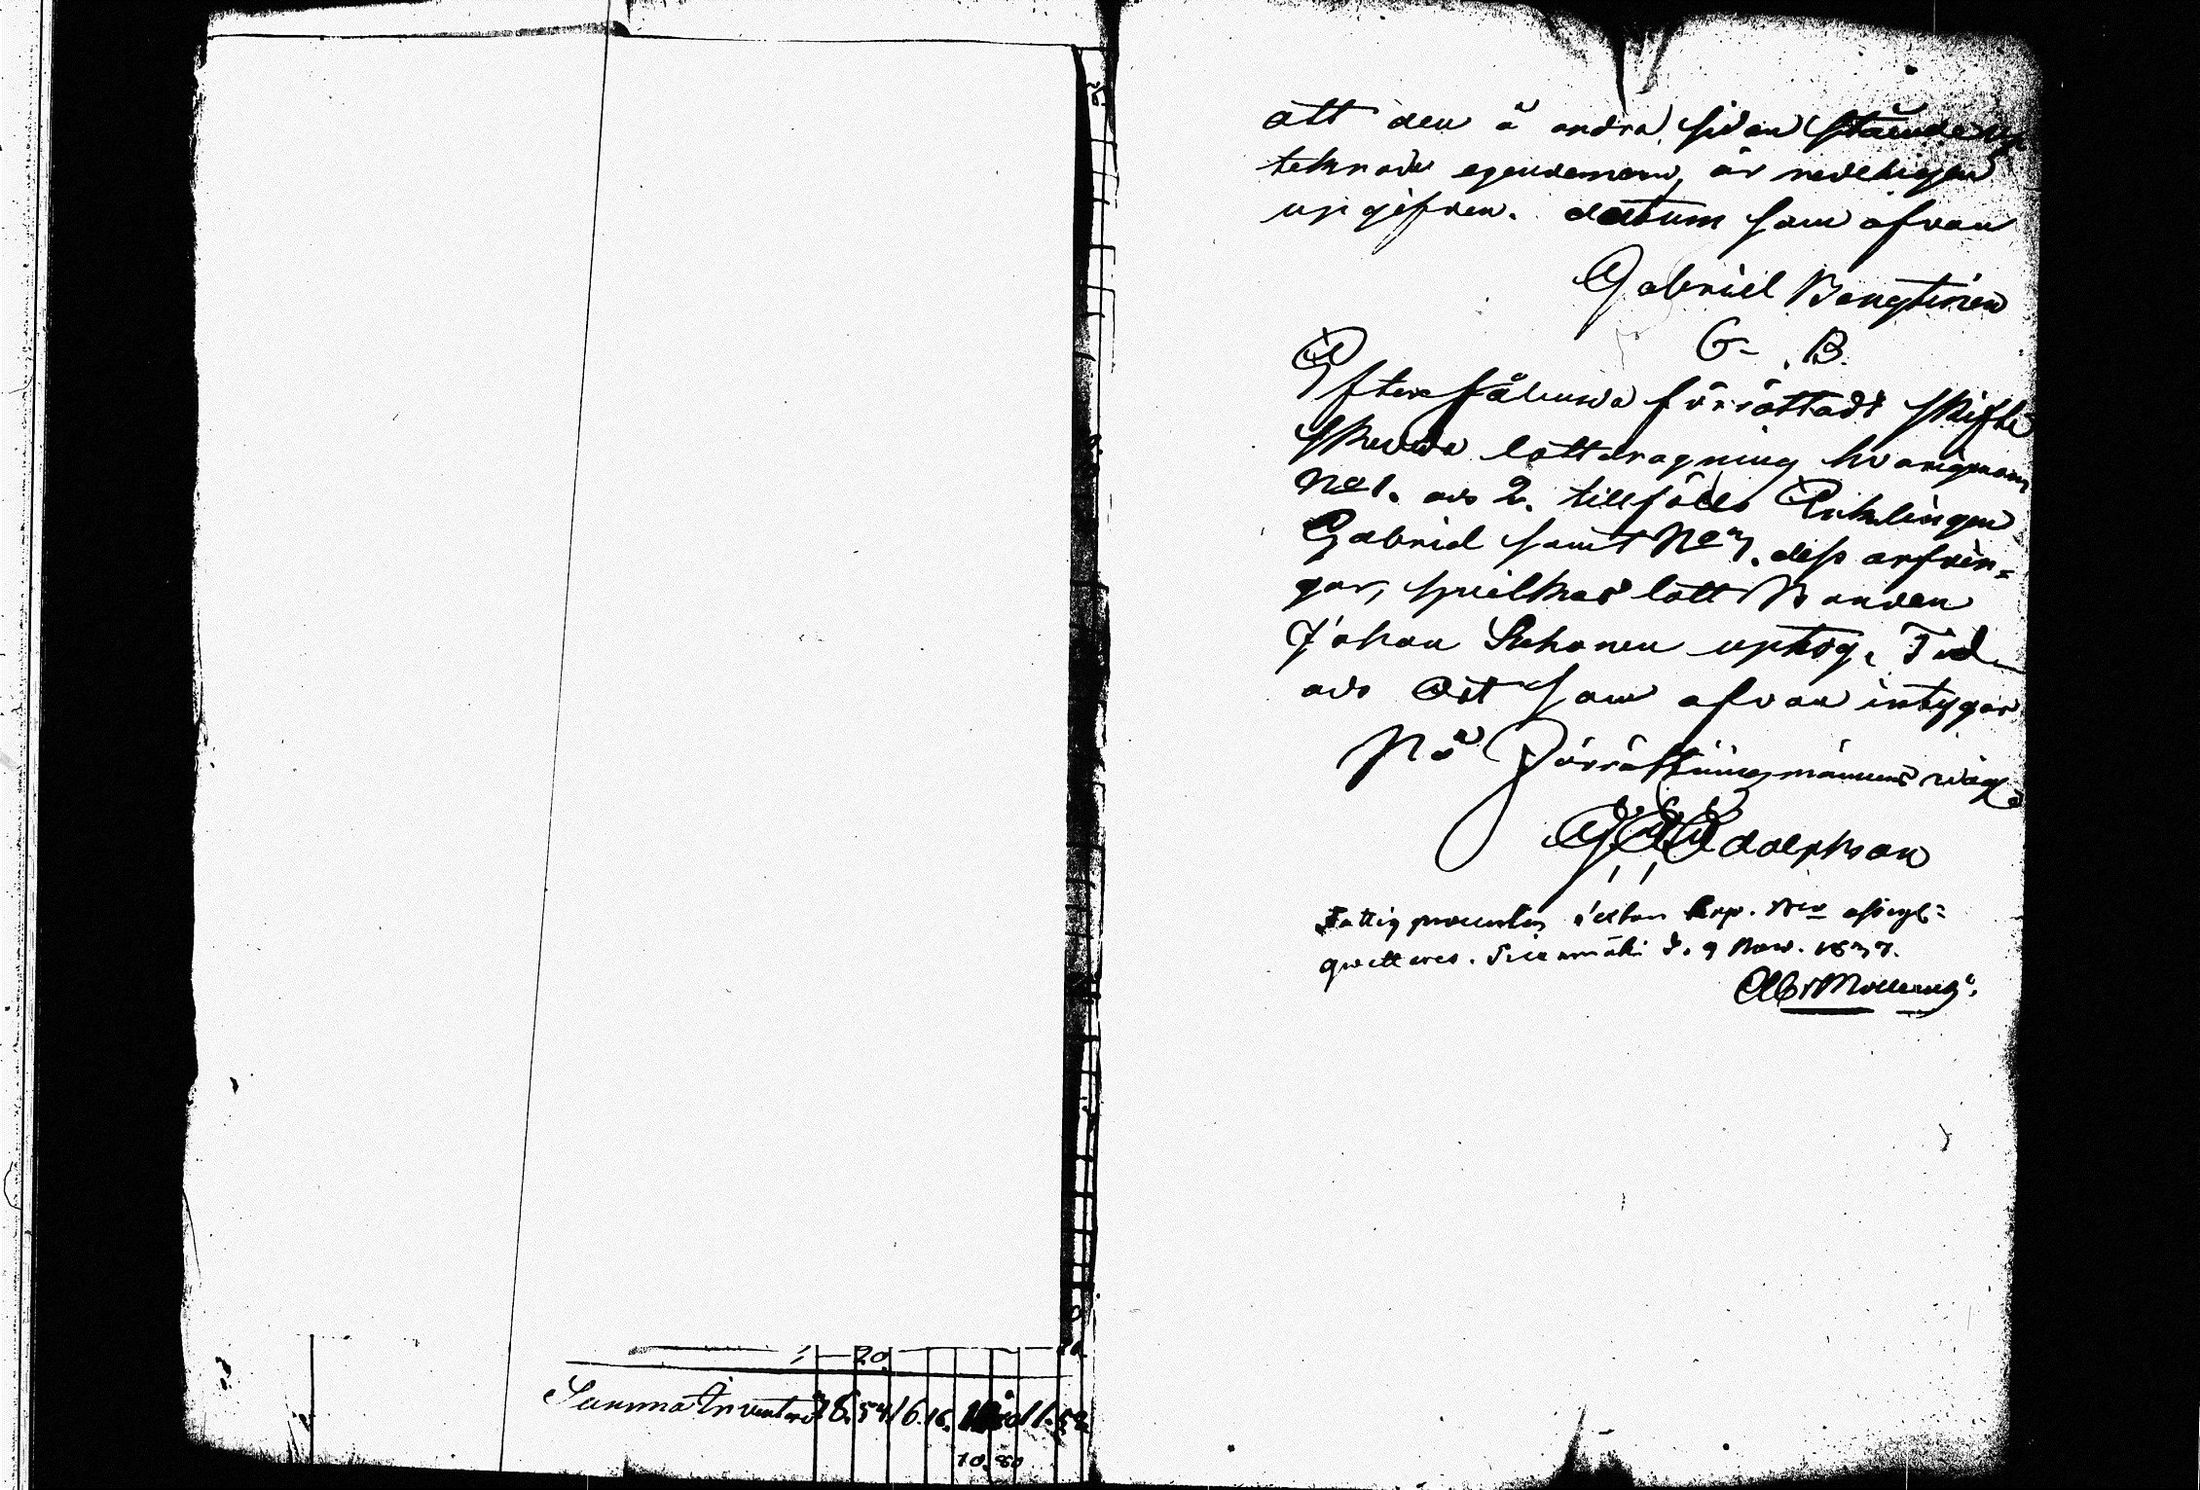 20.
Summa Inventari 18. 54 16. 16. 11. 52
10. 80
att den å andra sidan stående up
teknade egendomen, är redeligen
upgifven. datum som ofvan
Gabriel Bengtinen
G. B.
Efter sålunda förrättadt skifte
skedde lottdragning hvarigenom
No 1. och 2. tillföllo Enklingen
Gabriel samt No 3. dess arfvin=
gar, hvilkas lott Bonden
Johan Suhonen uptog. Tid
och Ort som ofvan intygar
På Förrättningsmännens wägar
Adolphson
Fattig procenten
qvitteras. d. 9 Nov. 1837.